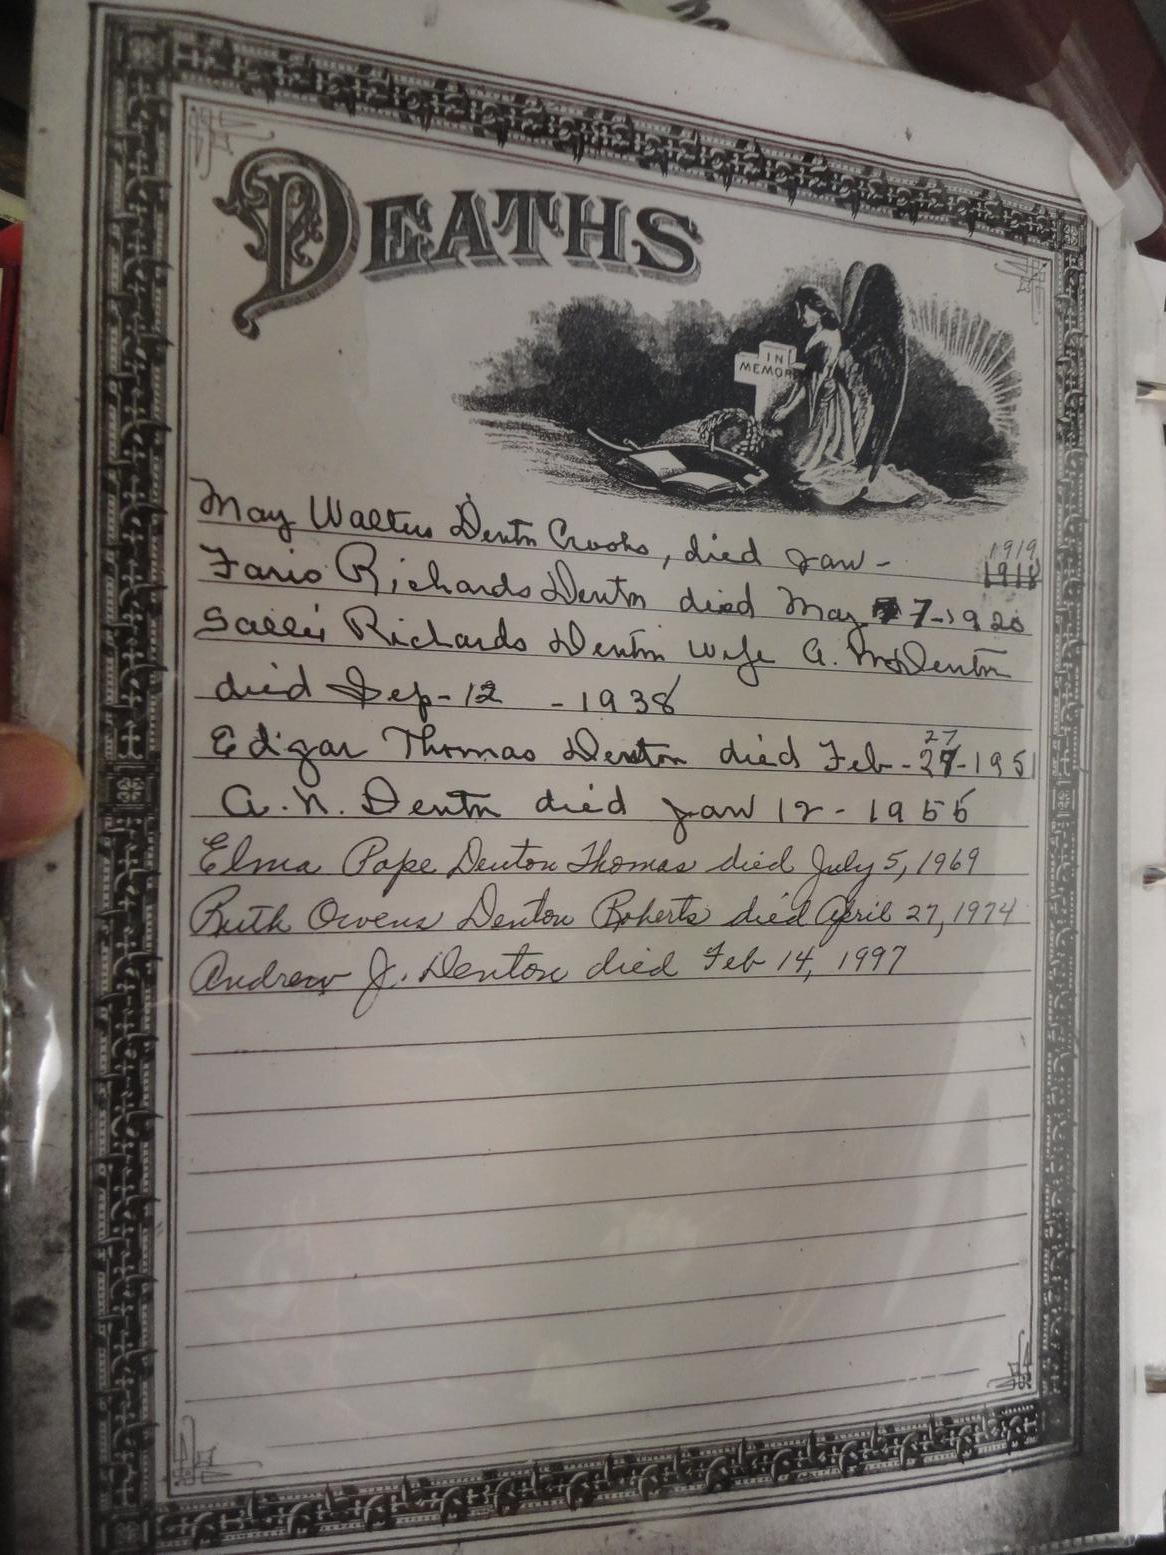 DEATHS
IN
MEMOR
May Walters Denton Crooks, died Jan - 1919
1918
Fario Richards Denton died May 7-1920
Sallie Richards Denton wife A. N. Denton
died Sep-12 -1938
27
Edigar Thomas Denton died Feb-27-1951
A. N. Denton died Jan 12-1955
Elma Pope Denton Thomas died July 5, 1969
Ruth Owens Denton Roberts died April 27, 1974
Andrew J. Denton died Feb 14, 1997